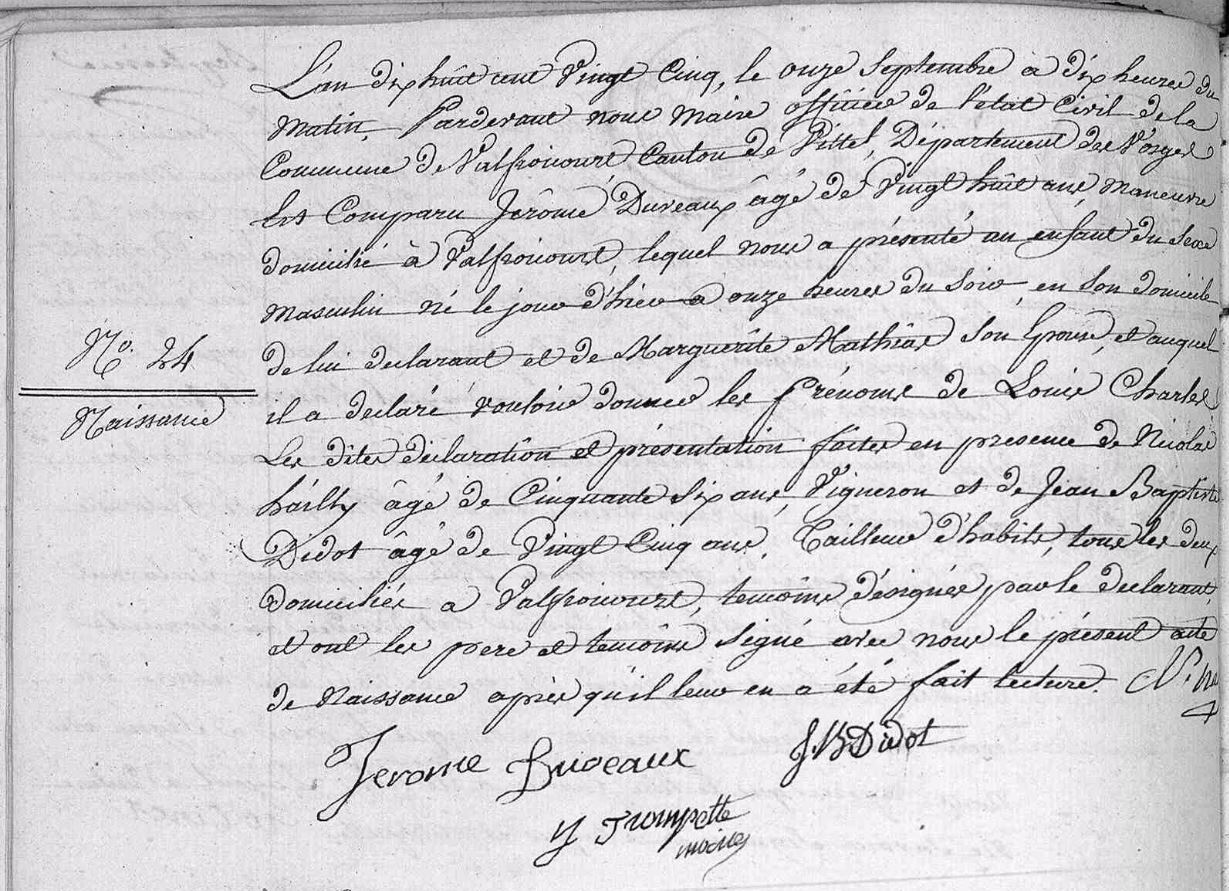 L'an dix huit cent Vingt Cinq, le onze Septembre à dix heures du
Matin, Pardevant nous Maire officier de l'état Civil de la
Commune de Valfroicourt Canton de Vittel, Département des Vosges
Est Comparu Jerôme Duveaux âgé de Vingt huit ans, Maneuvre
domicilié à Valfroicourt, lequel nous a présenté un enfant du Sexe
Masculin né le jour d'hier à onze heures du Soir en Son domicile
de lui declarant et de Marguerite Mathias Son Epouse, et auquel
No. 24
il a declaré vouloir donner les prénoms de Louis Charles
Naissance
Les dites déclaration et présentation faites en presence de Nicolas
hailly âgé de Cinquante Six ans, Vigneron et de Jean Baptiste
Didot âgé de Vingt Cinq ans, Tailleur d'habits, tous les deux
domiciliés à Valfroicourt, temoins désignés par le declarant,
et ont les pere et temoins Signé avec nous le présent acte
de Naissance après qu'il leur en a été fait lecture.
Jerome Duveaux
J B Didot
Trompette